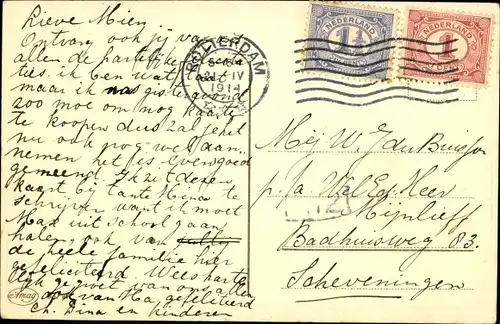 Lieve Mien,
Ontvang ook jij van
allen de hartelijke
ties. ik ben wat laat
maar ik was gisteravond
zoo moe om nog kaarten
te koopen dus zal je het
nu ook nog wel aan-
nemen het is evengoed
gemeend. Ik zit deze
kaart bij tante Mina te
schrijven want ik moet
Max uit school gaan
halen, ook van
de heele familie hier
gefeliciteerd. Wees hart.
gegroet van ons allen
ook van Ma, gefeliciteerd
Ch. Dina en kinderen
Amag
ROTTERDAM
IV
1914
NEDERLAND
1½
NEDERLAND
1
Mej W. J. du Buisson
p/a Wel Ed. Heer
Mijnlieff
Badhuisweg 83.
Scheveningen